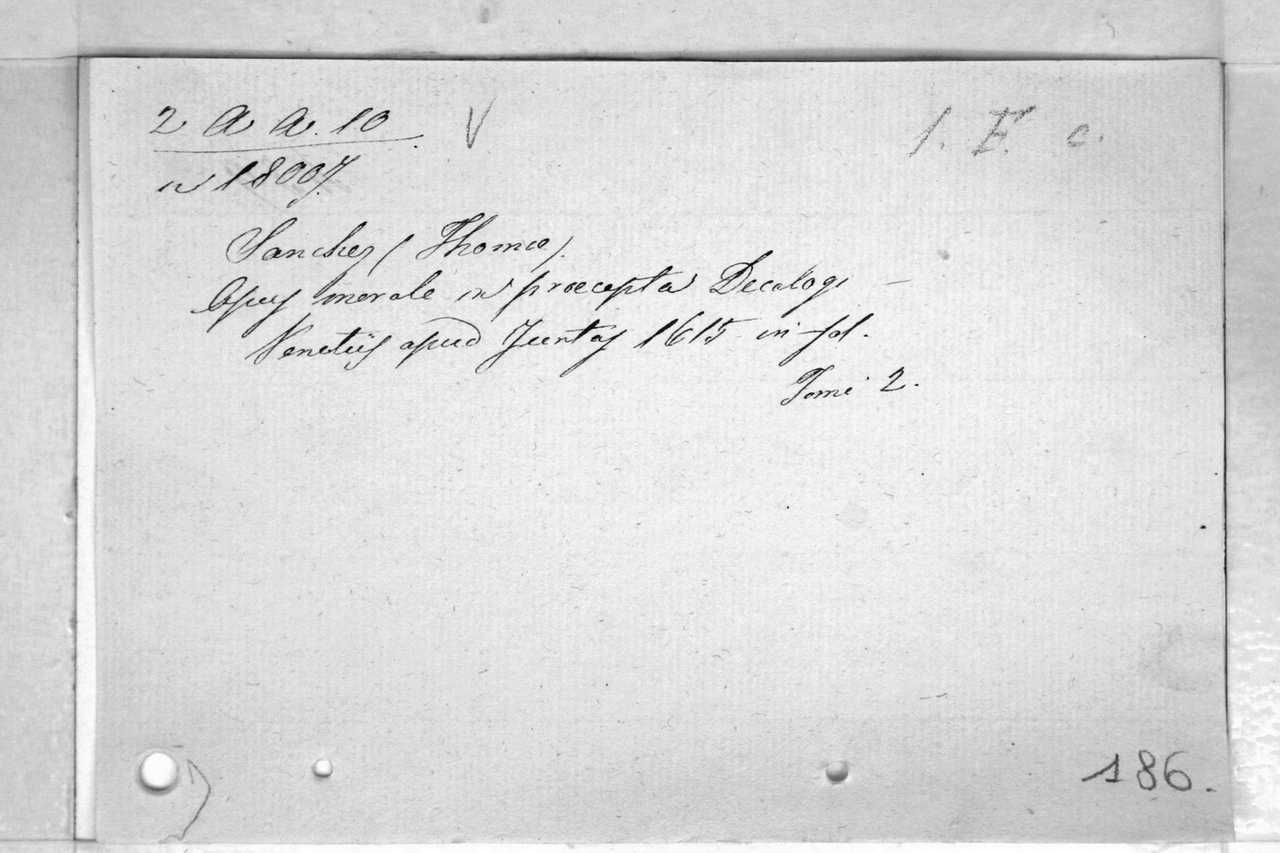 2 A A. 10 V 1. F. c.
n 18007.
Sanchez (Thomæ).
Opus morale in præcepta Decalogi —
Venetiis apud Juntas 1615 in-fol.
Tomi 2.
186.